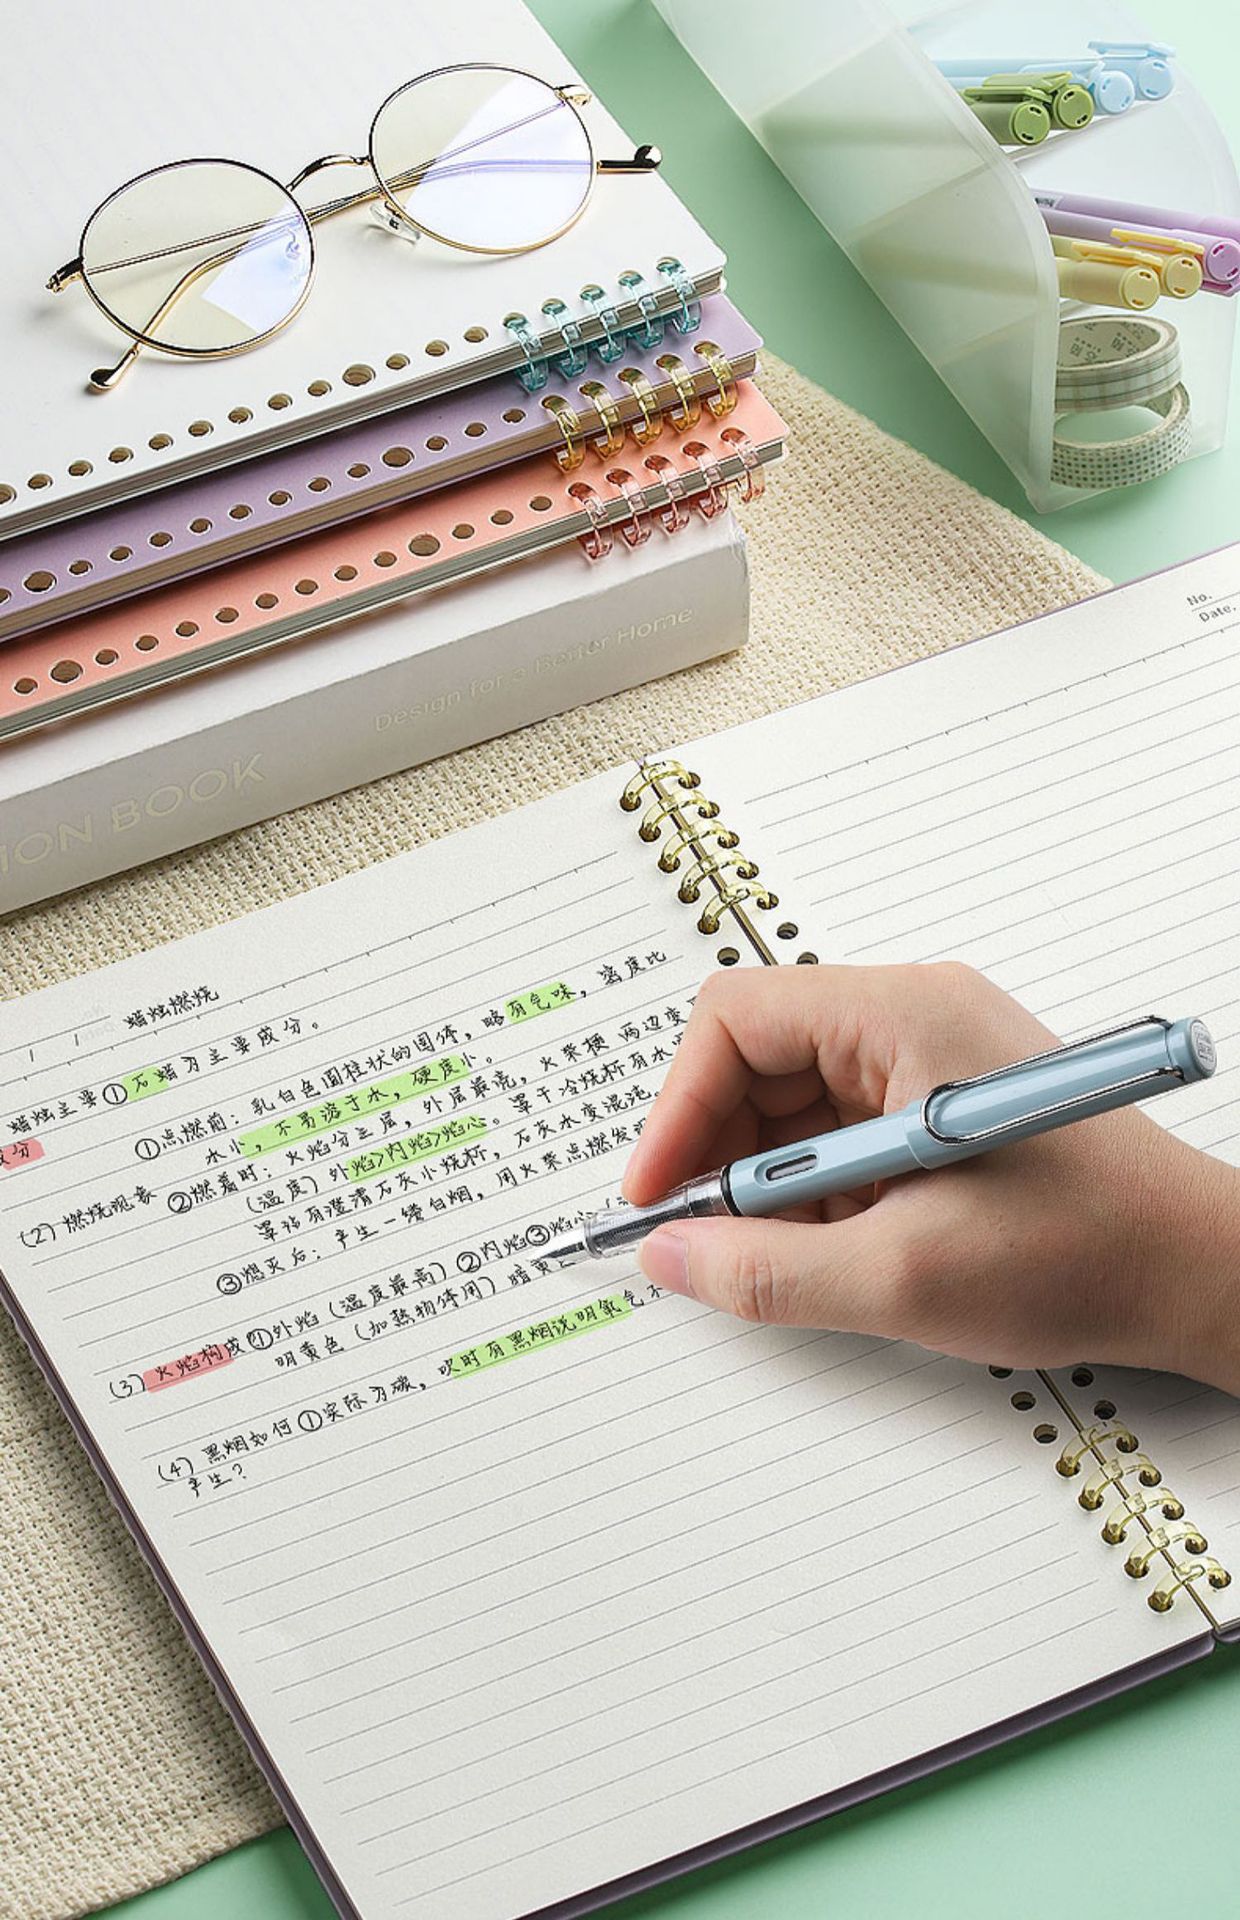 Design for a Better Home
ION BOOK
No.
Date.
蜡烛燃烧
蜡烛主要①石蜡为主要成分。
成分
(2)燃烧现象 ①点燃前：乳白色圆柱状的固体，略有气味，密度比
水小，不易溶于水，硬度小。
②燃着时：火焰分三层，外层最亮，火柴梗两边变
(温度)外焰>内焰>焰心。罩干冷烧杯有水
罩沾有澄清石灰小烧杯，石灰水变混浊。
③熄灭后：产生一缕白烟，用火柴点燃发
(3)火焰构成①外焰(温度最高)②内焰③焰心
明黄色(加热物体用)暗黄
(4)黑烟如何①实际为碳，吹时有黑烟说明氧气不
产生？